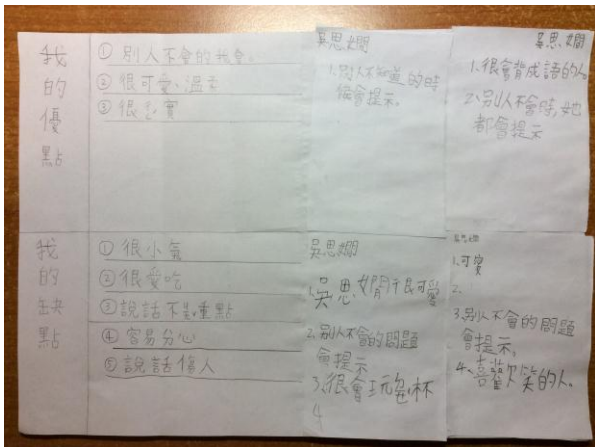 我的優點
① 別人不會的我會。
② 很可愛、溫柔
③ 很忠實
我的缺點
① 很小氣
② 很愛吃
③ 說話不是重點
④ 容易分心
⑤ 說話傷人
吳思嫺
1.別人不知道的時
候會提示。
吳思嫺
1.很會背成語的人。
2.別人不會時,她
都會提示
吳思嫺
1.吳思嫺很可愛
2.別人不會的問題
會提示
3.很會玩
4
吳思嫺
1.可愛
2.
3.別人不會的問題
會提示。
4.喜歡笑的人。